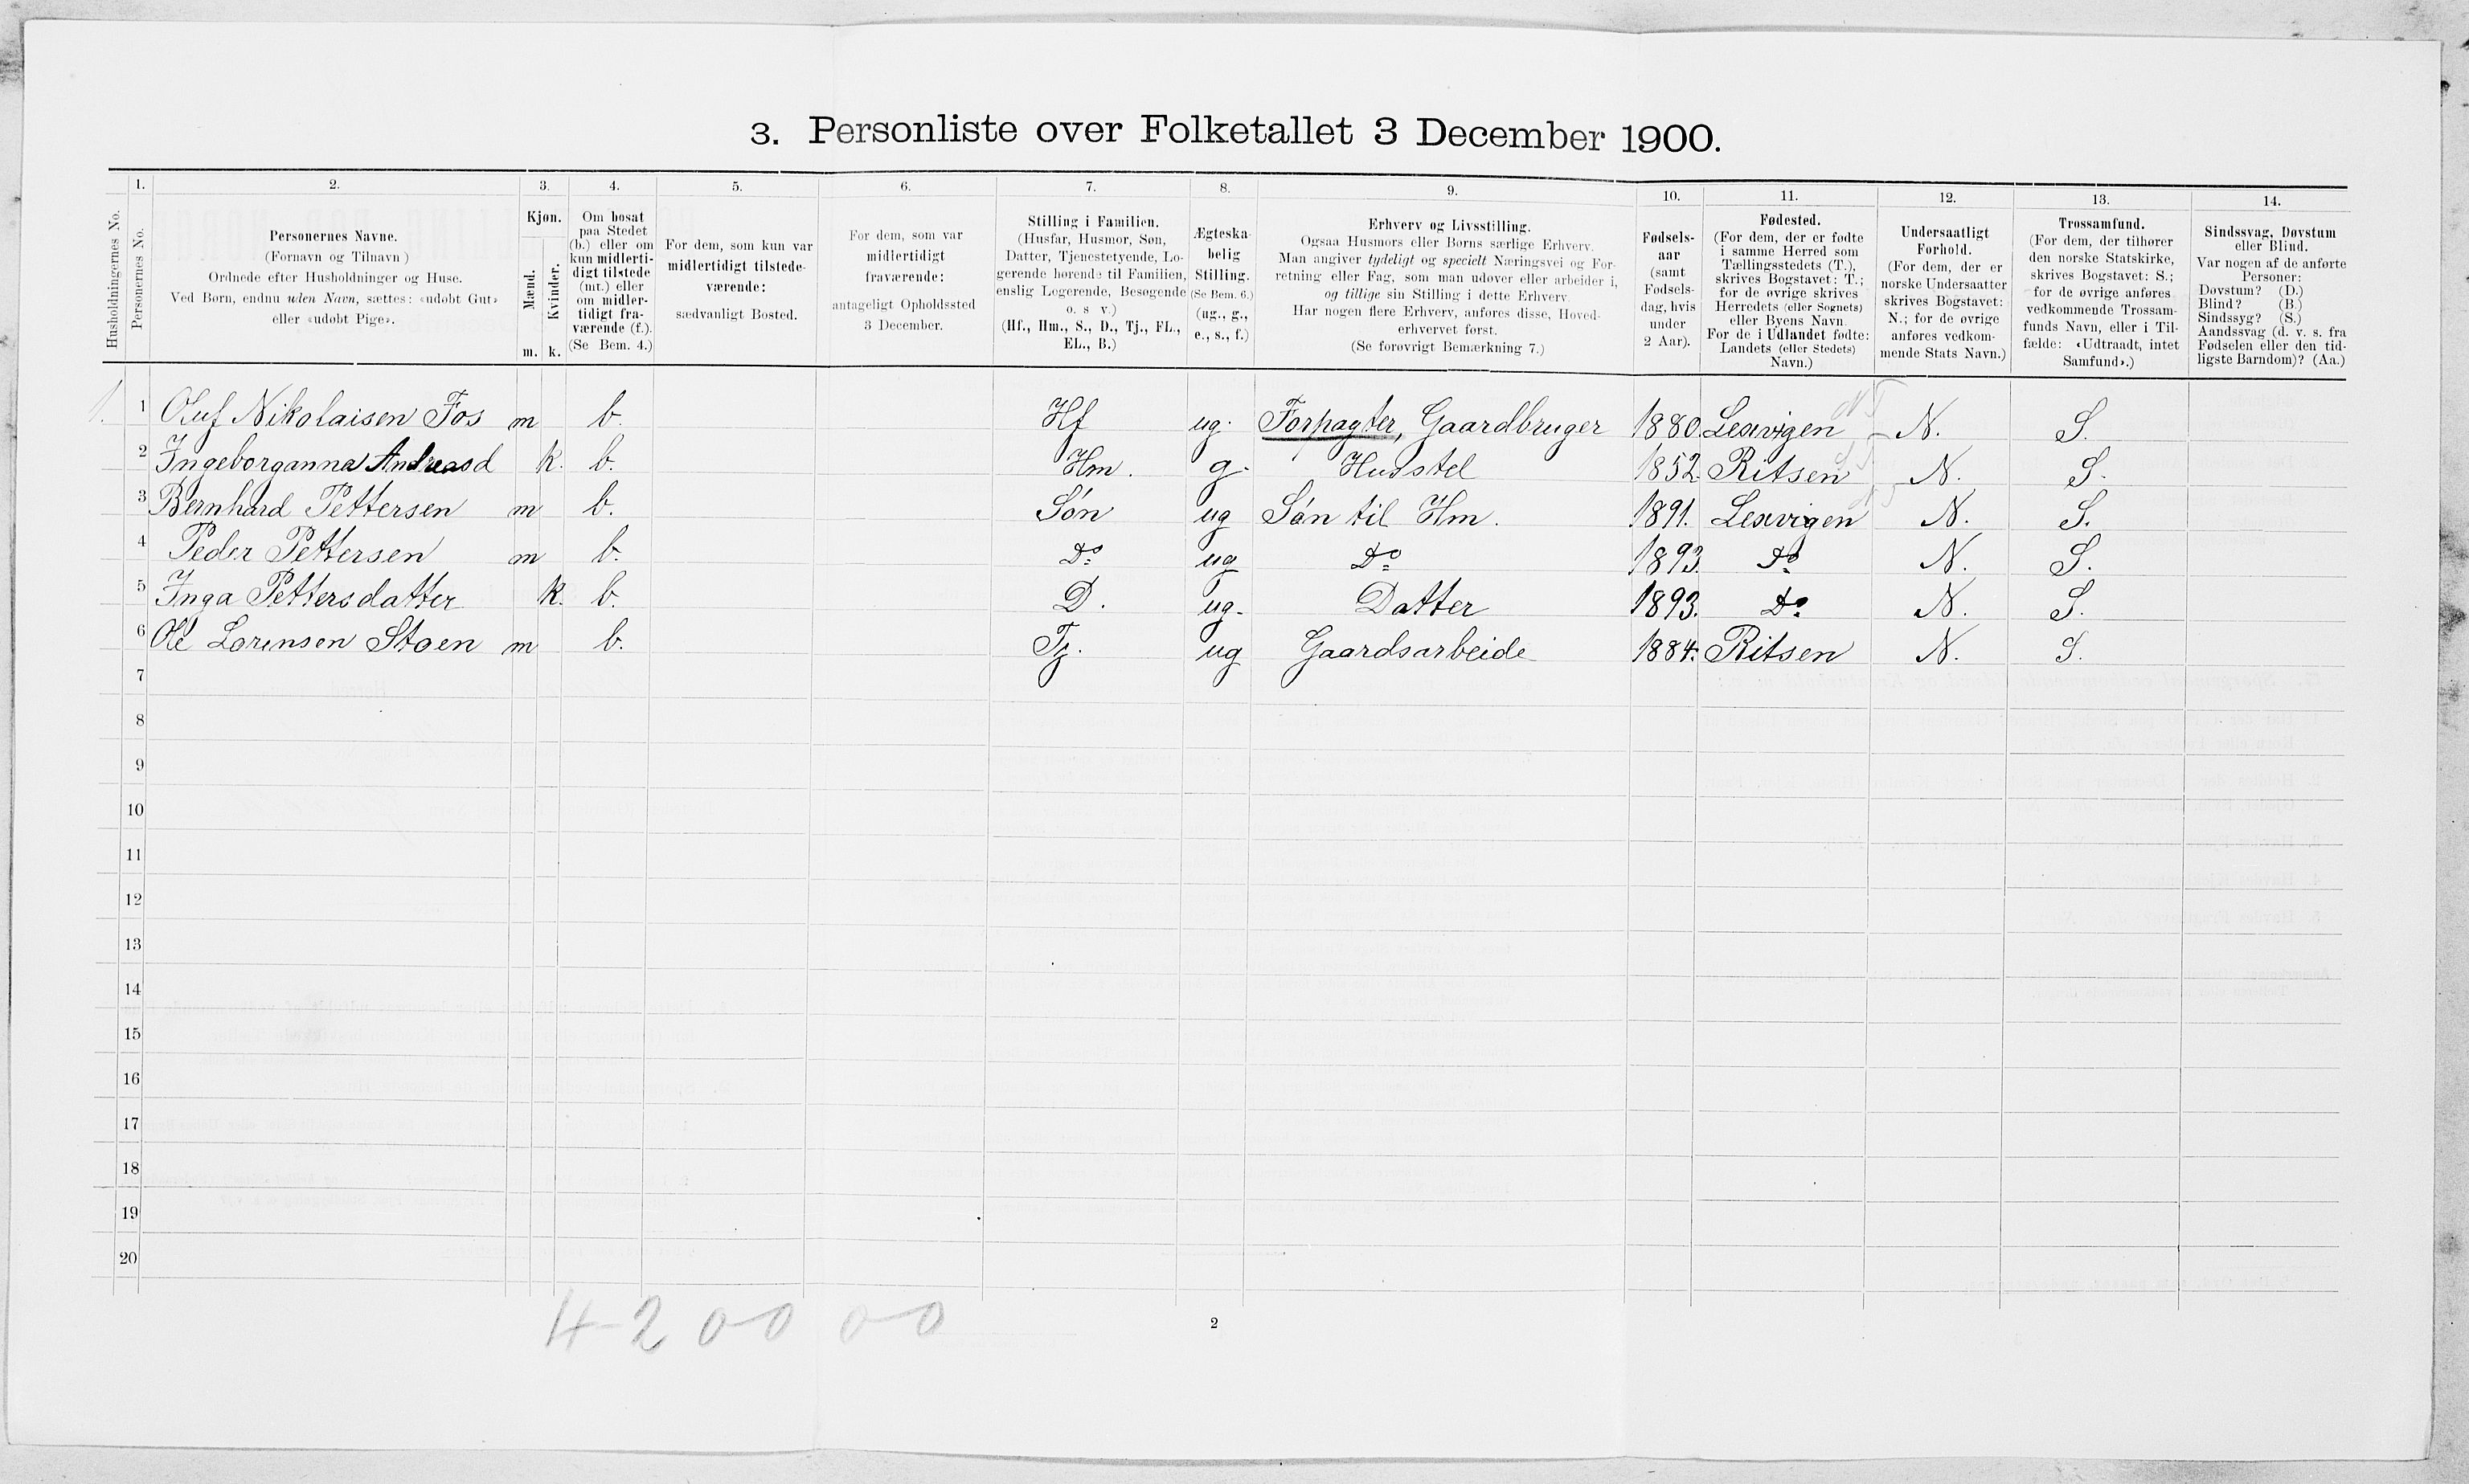 3. Personliste over Folketallet 3 December 1900.
1. 2. 3. 4. 5. 6. 7. 8. 9. 10. 11. 12. 13. 14.
Husholdningernes No.
Personernes No.
Personernes Navne.
(Fornavn og Tilnavn )
Ordnede efter Husholdninger og Huse.
Ved Børn, endnu uden Navn, sættes: «udøbt Gut»
eller «udøbt Pige».
Kjøn.
Mænd.
Kvinder.
m. k.
Om bosat
paa Stedet
(b.) eller om
kun midlerti-
digt tilstede
(mt.) eller
om midler-
tidigt fra-
værende (f.).
(Se Bem. 4.)
For dem, som kun var
midlertidigt tilstede-
værende:
sædvanligt Bosted.
For dem, som var
midlertidigt
fraværende:
antageligt Opholdssted
3 December.
Stilling i Familien.
(Husfar, Husmor, Søn,
Datter, Tjenestetyende, Lo-
gerende hørende til Familien,
enslig Logerende, Besøgende
o. s v.)
(Hf., Hm., S., D., Tj., FL.,
EL., B.)
Ægteska-
belig
Stilling.
(Se Bem. 6.)
(ug., g.,
e., s., f.)
Erhverv og Livsstilling.
Ogsaa Husmors eller Børns særlige Erhverv.
Man angiver tydeligt og specielt Næringsvei og For-
retning eller Fag, som man udøver eller arbeider i,
og tillige sin Stilling i dette Erhverv.
Har nogen flere Erhverv, anføres disse, Hoved-
erhvervet først.
(Se forøvrigt Bemærkning 7.)
Fødsels-
aar
(samt
Fødsels-
dag, hvis
under
2 Aar).
Fødested.
(For dem, der er fødte
i samme Herred som
Tællingsstedets (T.),
skrives Bogstavet: T.;
for de øvrige skrives
Herredets (eller Sognets)
eller Byens Navn.
For de i Udlandet fødte:
Landets (eller Stedets)
Navn.)
Undersaatligt
Forhold.
(For dem, der er
norske Undersaatter
skrives Bogstavet:
N.; for de øvrige
anføres vedkom-
mende Stats Navn.)
Trossamfund.
(For dem, der tilhører
den norske Statskirke,
skrives Bogstavet: S.;
for de øvrige anføres
vedkommende Trossam-
funds Navn, eller i Til-
fælde: «Udtraadt, intet
Samfund».)
Sindssvag, Døvstum
eller Blind.
Var nogen af de anførte
Personer:
Døvstum? (D.)
Blind? (B.)
Sindssyg? (S.)
Aandssvag (d. v. s. fra
Fødselen eller den tid-
ligste Barndom)? (Aa.)
1. 1 Oluf Nikolaisen Fos m b. Hf ug. Forpagter, Gaardbruger 1880. Lexvigen N. S.
2 Ingeborganna Andreasd k. b. Hm. g. Husstel 1852. Ritsen N. S.
3 Bernhard Pettersen m b. Søn ug Søn til Hm. 1891. Lexvigen N. S.
4 Peder Pettersen m b. Do ug Do 1893. Do N. S.
5 Inga Pettersdatter k. b. D. ug. Datter 1893. Do N. S.
6 Ole Lorensen Stoen m b. Tj. ug Gaardsarbeide 1884. Ritsen N. S.
7
8
9
10
11
12
13
14
15
16
17
18
19
20
4-2 0-0 0-0
2